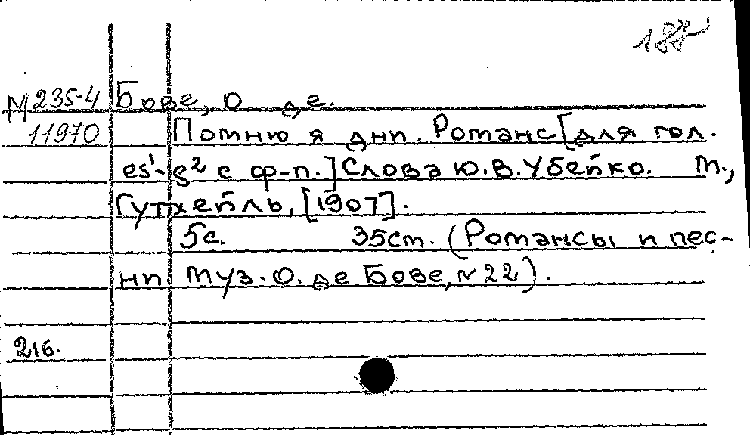 188
М 235-4 Бове, О. де.
11970 Помню я дни. Романс [для гол.
es¹-g² с ф-п.] Слова Ю.В.Убейко. М.,
Гутхейль, [1907].
5с. 35см. (Романсы и пес-
ни муз. О. де Бове, №22).
216.